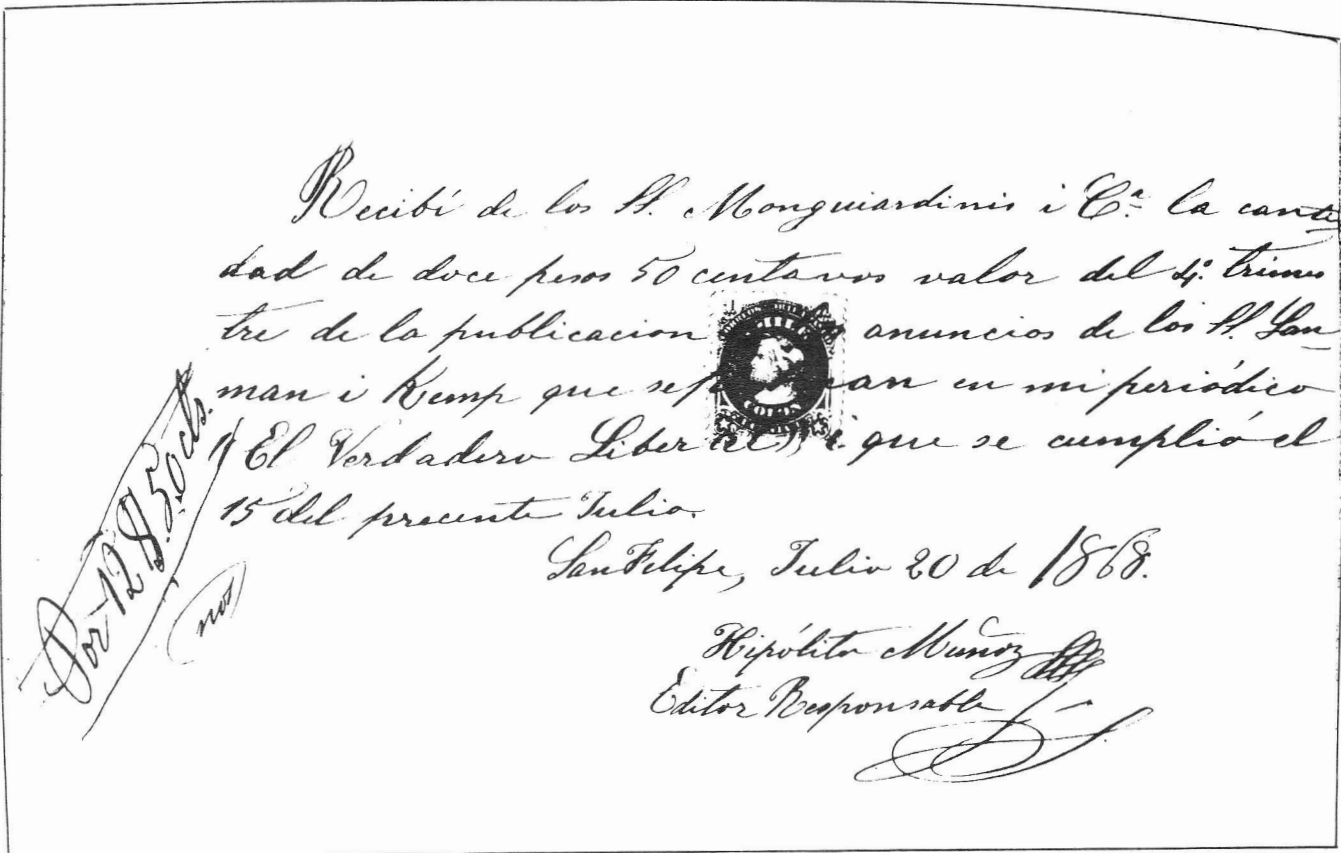 Recibí de los SS. Monguiardinis i Cª la canti
dad de doce pesos 50 centavos valor del 4º trimes
tre de la publicacion anuncios de los SS. Lan
man i Kemp que se en mi periódico
"El Verdadero Liberal", i que se cumplió el
15 del precente Julio.
San Felipe, Julio 20 de 1868.
Hipólito Muñoz
Editor Responsable
Por 12 $ 50 cts.
CHILE
COLON